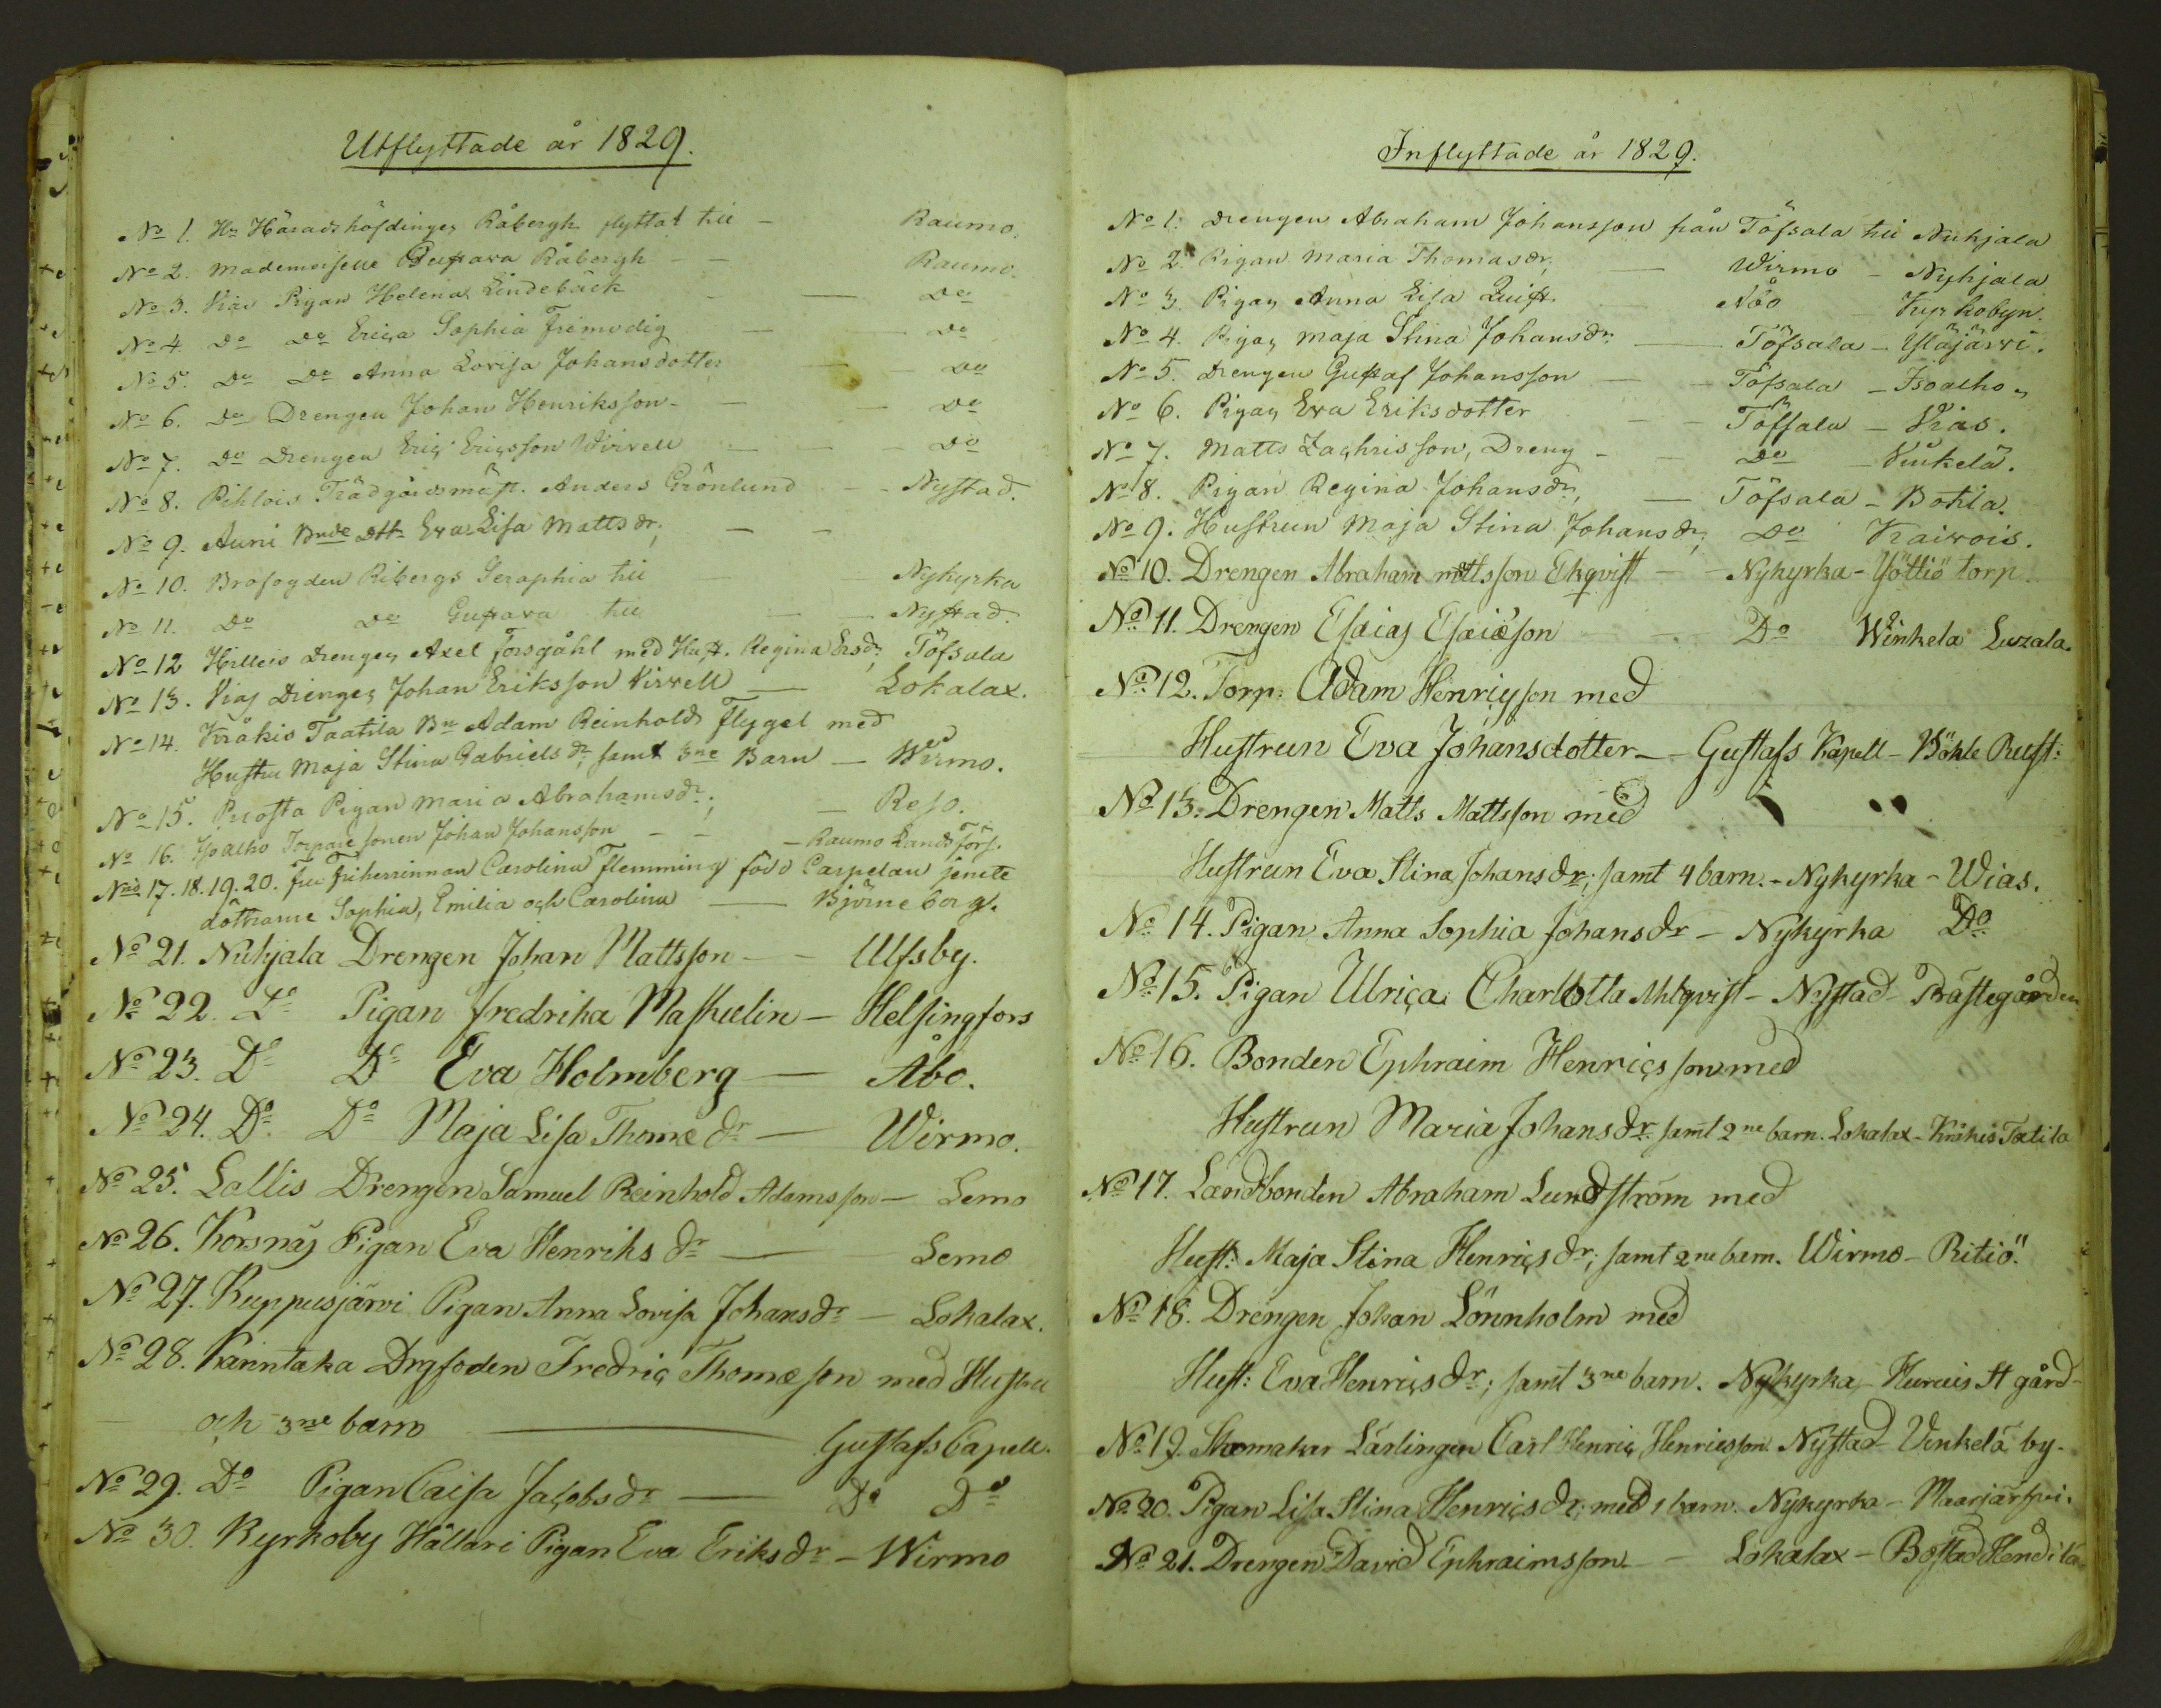 Utflyttade år 1829.
No 1. Hr Häradshöfdingen Råbergh flyttat till - Raumo.
No 2. Mademoiselle Gustava Råbergh - - Raumo.
No 3. Vias Pigan Helena Lindebäck - — Do
No 4. Do Do Erica Sophia Frimodig — — Do
No 5. Do Do Anna Lovisa Johansdotter — - Do
No 6. Do Drengen Johan Henriksson - — — Do
No 7. Do Drengen Eric Ericsson Wirvell — — - Do
No 8. Pihlois Trädgårdsmäst. Anders Grönlund - - Nystad.
No 9. Auni Bnde Dttr Eva Lisa Mattsdr; — -
No 10. Brofogden Ribergs Seraphia till — Nykyrka
No 11. Do Do Gustava till — Nystad.
No 12 Hilleis Drengen Axel Forsgåhl med Hust. Regina Ersdr; Töfsala
No 13. Vias Drengen Johan Eriksson Virvell — Lokalax.
No 14. Kråkis Taatila Bn Adam Reinhold Flygel med
Hustru Maja Stina Gabrielsdr; samt 3ne Barn — Wirmo.
No 15. Puosta Pigan Maria Abrahamsdr; — Reso.
No 16. Isoalho Torpare sonen Johan Johansson - - - Raumo Lands Förs.
No 17. 18. 19. 20. Fru Friherrinnan Carolina Flemming född Carpelan jemte
döttrarne Sophia, Emilia och Carolina — Björneborg.
No 21. Nuhjala Drengen Johan Mattsson - - Ulfsby.
No 22. Do Pigan Fredrika Maskulin — Helsingfors
No 23. Do Do Eva Holmberg — Åbo.
No 24. Do Do Maja Lisa Thomædr — Wirmo.
No 25. Lallis Drengen Samuel Reinhold Adamsson — Lemo
No 26. Korsnäs Pigan Eva Henriksdr — Lemo
No 27. Kuppusjärvi Pigan Anna Lovisa Johansdr — Lokalax.
No 28. Kanntaka Drgfoden Fredric Thomæson med Hustru
och 3ne barn — Gustafs Capell.
No 29. Do Pigan Caisa Jacobsdr — Do Do
No 30. Kyrkoby Hällari Pigan Eva Eriksdr — Wirmo
Inflyttade år 1829.
No 1. Drengen Abraham Johansson från Töfsala till Nuhjala
No 2. Pigan Maria Thomasdr; — Wirmo - Nyhjala
No 3. Pigan Anna Lisa Quist. — Nåo Kyrkobyn.
No 4. Pigan Maja Stina Johansdr; — Töfsala - Yläjärvi.
No 5. Drengen Gustaf Johansson — - Töfsala - Isoalho.
No 6. Pigan Eva Eriksdotter - - Töfsala - Vias.
No 7. Matts Zachrisson, Dreng - - Do - Vinkelä.
No 8. Pigan Regina Johansdr; — Töfsala - Botila.
No 9. Hustrun Maja Stina Johansdr; Do Kaivois.
No 10. Drengen Abraham Mattsson Ekqvist - - Nykyrka - Yöttiö torp.
No 11. Drengen Esaias Esaiæson - - Do Winkela Luzala.
No 12. Torp: Adam Henricsson med
Hustrun Eva Johansdotter — Gustafs Kapell - Böhle Rust:
No 13. Drengen Matts Mattsson med
Hustrun Eva Stina Johansdr; samt 4 barn. - Nykyrka - Wias.
No 14. Pigan Anna Sophia Johansdr - Nykyrka Do
No 15. Pigan Ulrica Charlotta Ahlqvist - Nystad - Prästegården
No 16. Bonden Ephraim Henricsson med
Hustrun Maria Johansdr samt 2ne barn. Lokalax - Kråkis Tatila
No 17. Landbonden Abraham Lundström med
Hust: Maja Stina Henricsdr; samt 2ne barn. Wirmo - Ritiö.
No 18. Drengen Johan Lönnholm med
Hust: Eva Henricsdr; samt 3ne barn. Nykyrka - Hurnis St gård
No 19. Skomakar Lärlingen Carl Henric Henricsson. Nystad - Venkelä by.
No 20. Pigan Lisa Stina Henricsdr; med 1 barn. Nykyrka - Maarjärfwi.
No 21. Drengen David Ephraimsson - Lokalax - Bostad Hendilä